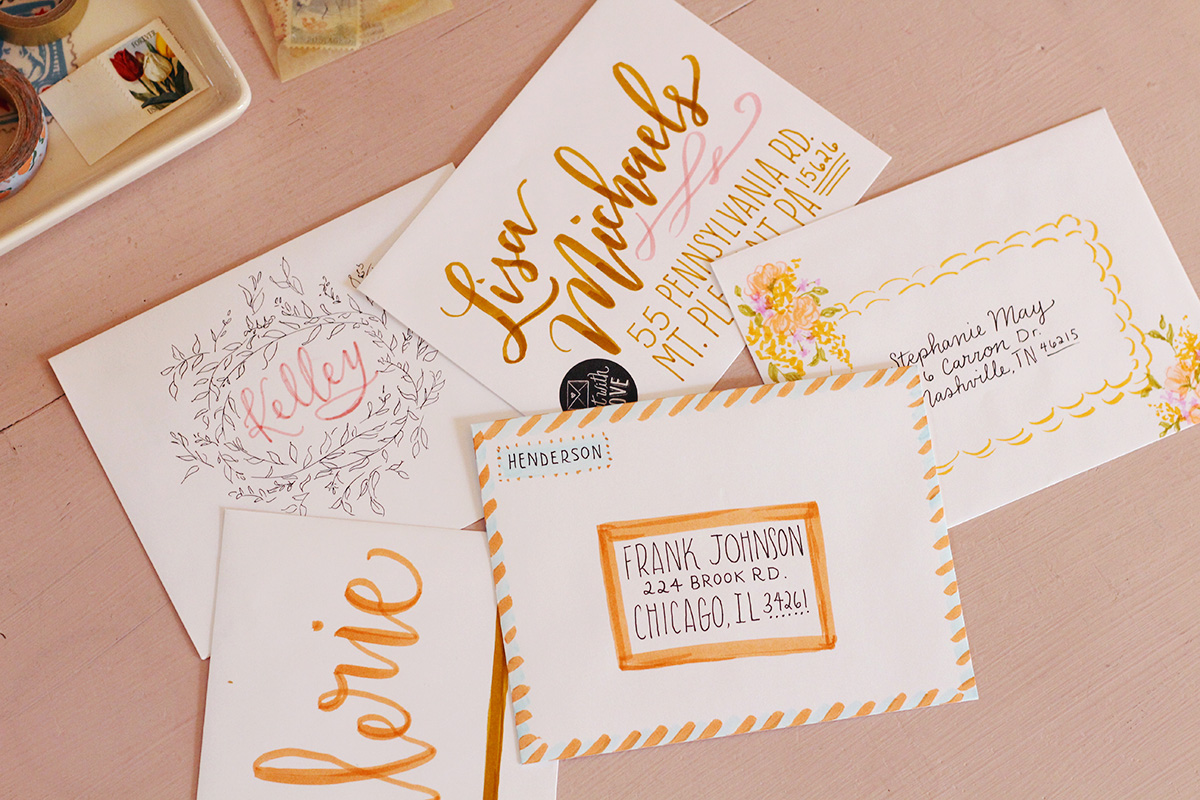 FOREVER
Lisa
Michaels
55 PENNSYLVANIA RD.
MT. PLE NT PA 15626
WITH
Kelley
Stephanie May
6 Carron Dr.
ashville, TN 46215
HENDERSON
FRANK JOHNSON
224 BROOK RD.
CHICAGO, IL 34261
erie